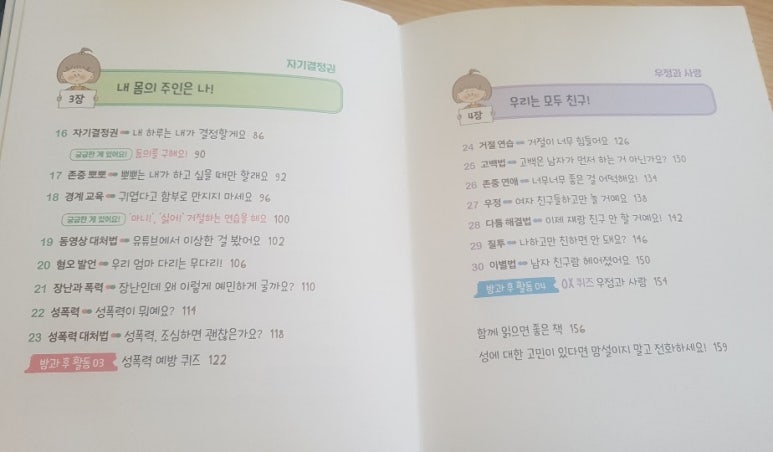 자기결정권
내 몸의 주인은 나!
3장
16 자기결정권 ➡ 내 하루는 내가 결정할게요 86
궁금한 게 있어요! 동의를 구해요! 90
17 존중 뽀뽀 ➡ 뽀뽀는 내가 하고 싶을 때만 할래요 92
18 경계 교육 ➡ 귀엽다고 함부로 만지지 마세요 96
궁금한 게 있어요! '아니!', '싫어!' 거절하는 연습을 해요 100
19 동영상 대처법 ➡ 유튜브에서 이상한 걸 봤어요 102
20 혐오 발언 ➡ 우리 엄마 다리는 무다리! 106
21 장난과 폭력 ➡ 장난인데 왜 이렇게 예민하게 굴까요? 110
22 성폭력 ➡ 성폭력이 뭐예요? 114
23 성폭력 대처법 ➡ 성폭력, 조심하면 괜찮은가요? 118
방과 후 활동 03 성폭력 예방 퀴즈 122
우정과 사랑
우리는 모두 친구!
4장
24 거절 연습 ➡ 거절이 너무 힘들어요 126
25 고백법 ➡ 고백은 남자가 먼저 하는 거 아닌가요? 130
26 존중 연애 ➡ 너무너무 좋은 걸 어떡해요! 134
27 우정 ➡ 여자 친구들하고만 놀 거예요 138
28 다툼 해결법 ➡ 이제 쟤랑 친구 안 할 거예요! 142
29 질투 ➡ 나하고만 친하면 안 돼요? 146
30 이별법 ➡ 남자 친구랑 헤어졌어요 150
방과 후 활동 04 OX 퀴즈 우정과 사랑 154
함께 읽으면 좋은 책 156
성에 대한 고민이 있다면 망설이지 말고 전화하세요! 159